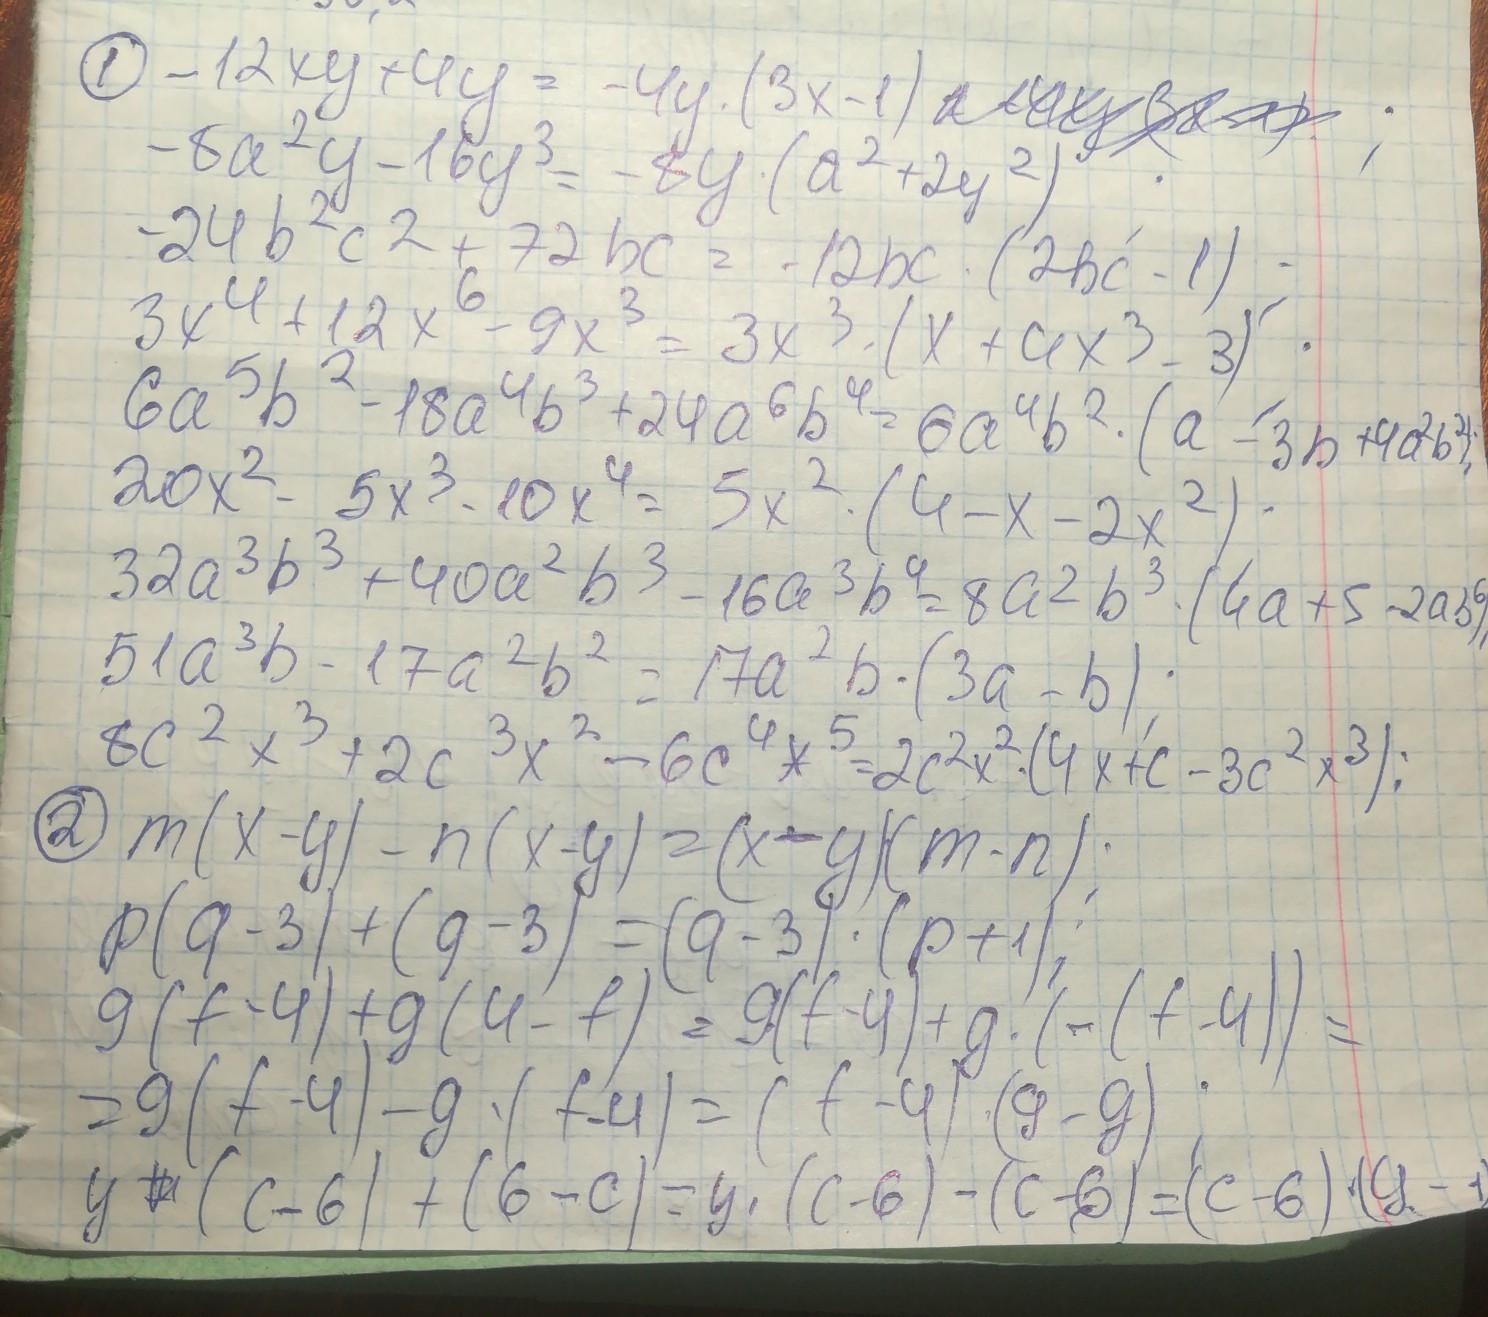 ① -12xy+4y = -4y·(3x-1) ;
-8a²y-16y³ = -8y·(a²+2y²) ;
-24b²c² + 72bc = -12bc·(2bc-1) ;
3x⁴+12x⁶-9x³ = 3x³·(x+4x³-3) ;
6a⁵b²-18a⁴b³+24a⁶b⁴ = 6a⁴b²·(a-3b+4a²b²);
20x²-5x³-10x⁴ = 5x²·(4-x-2x²) ;
32a³b³+40a²b³-16a³b⁹ = 8a²b³·(4a+5-2ab⁶);
51a³b-17a²b² = 17a²b·(3a-b) ;
8c²x³+2c³x²-6c⁴x⁵ = 2c²x²·(4x+c-3c²x³);
② m(x-y)-n(x-y) = (x-y)(m-n) ;
p(q-3)+(q-3) = (q-3)·(p+1);
9(f-4)+g(4-f) = 9(f-4)+g·(-(f-4)) =
= 9(f-4)-g·(f-4) = (f-4)·(9-g) ;
y (c-6)+(6-c) = y·(c-6)-(c-6) = (c-6)·(y-1)